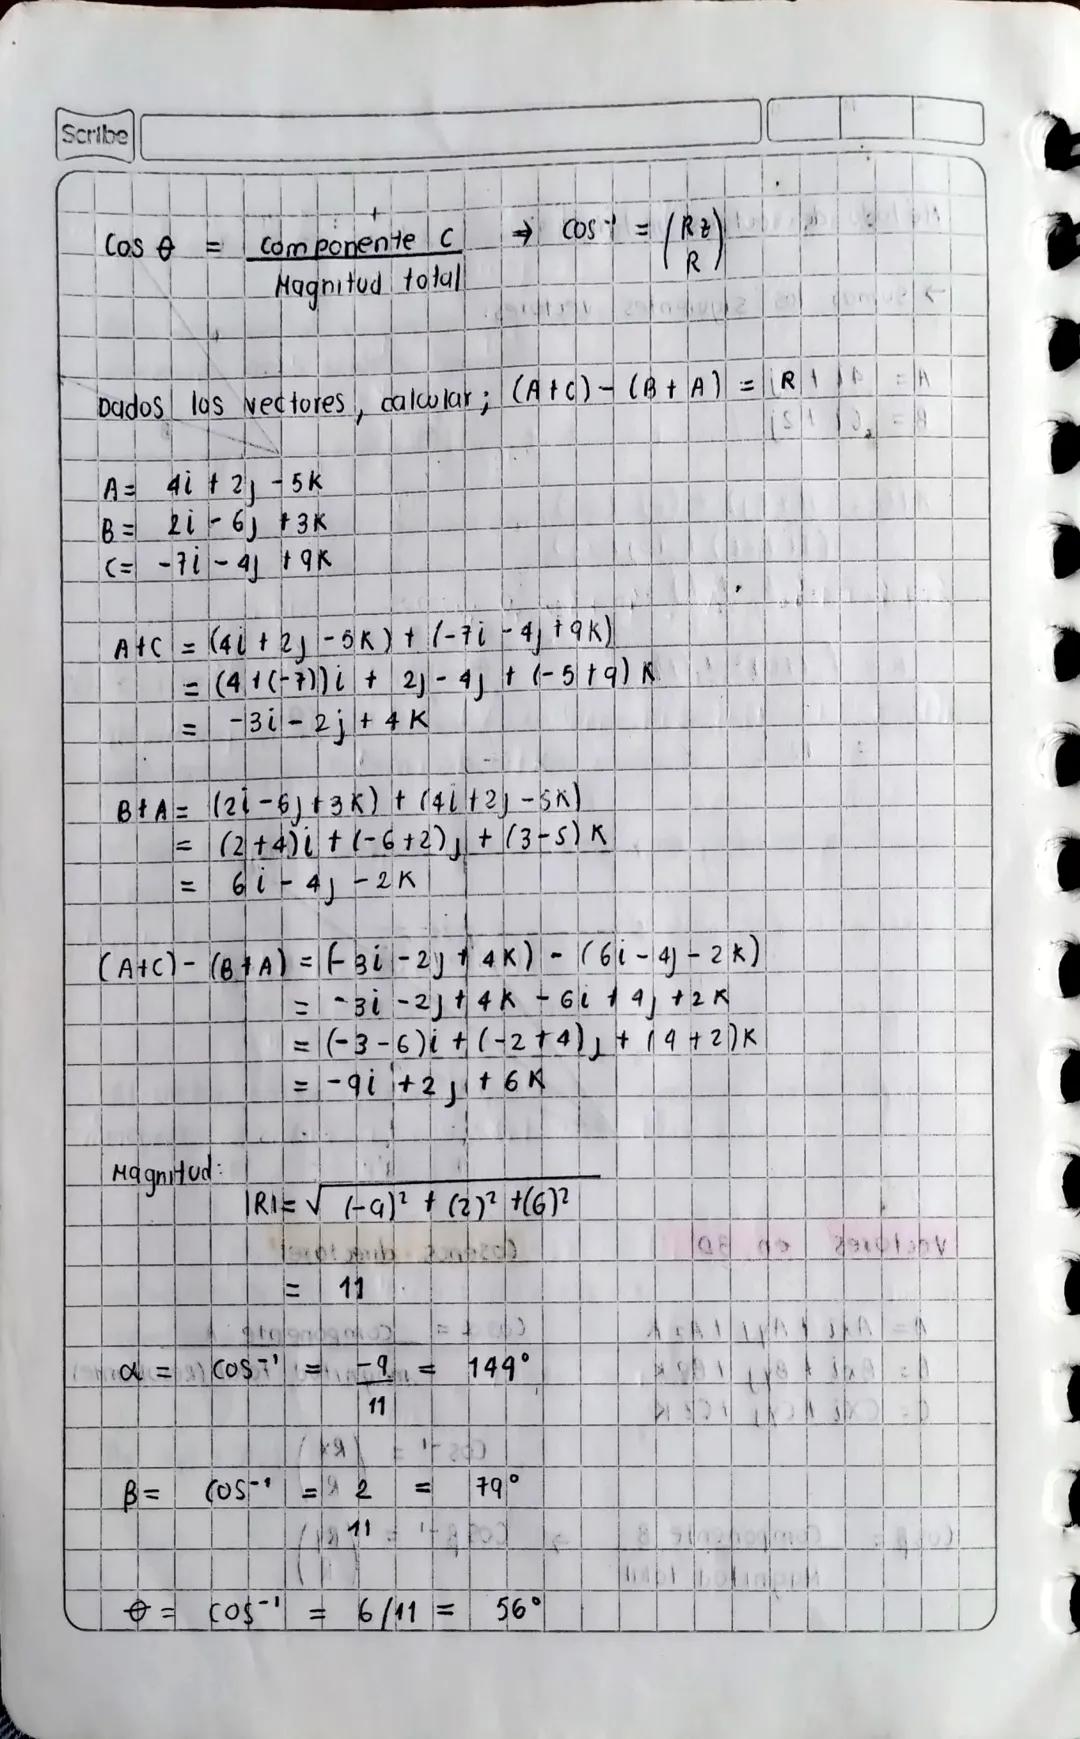 Scribe
Cos θ = componente C / Magnitud total → cos⁻¹ = (Rz / R)
Dados los vectores, calcular; (A+C) - (B+A) = R
A = 4i + 2j - 5K
B = 2i - 6j + 3K
C = -7i - 4j + 9K
A+C = (4i + 2j - 5K) + (-7i - 4j + 9K)
= (4+(-7))i + 2j - 4j + (-5+9) K
= -3i - 2j + 4K
B+A = (2i - 6j + 3K) + (4i + 2j - 5K)
= (2+4)i + (-6+2)j + (3-5) K
= 6i - 4j - 2K
(A+C) - (B+A) = (-3i - 2j + 4K) - (6i - 4j - 2K)
= -3i - 2j + 4K - 6i + 4j + 2K
= (-3-6)i + (-2+4)j + (4+2)K
= -9i + 2j + 6K
Magnitud:
|R| = √(-9)² + (2)² + (6)²
= 11
α = cos⁻¹ = -9/11 = 144°
β = cos⁻¹ = 2/11 = 79°
θ = cos⁻¹ = 6/11 = 56°